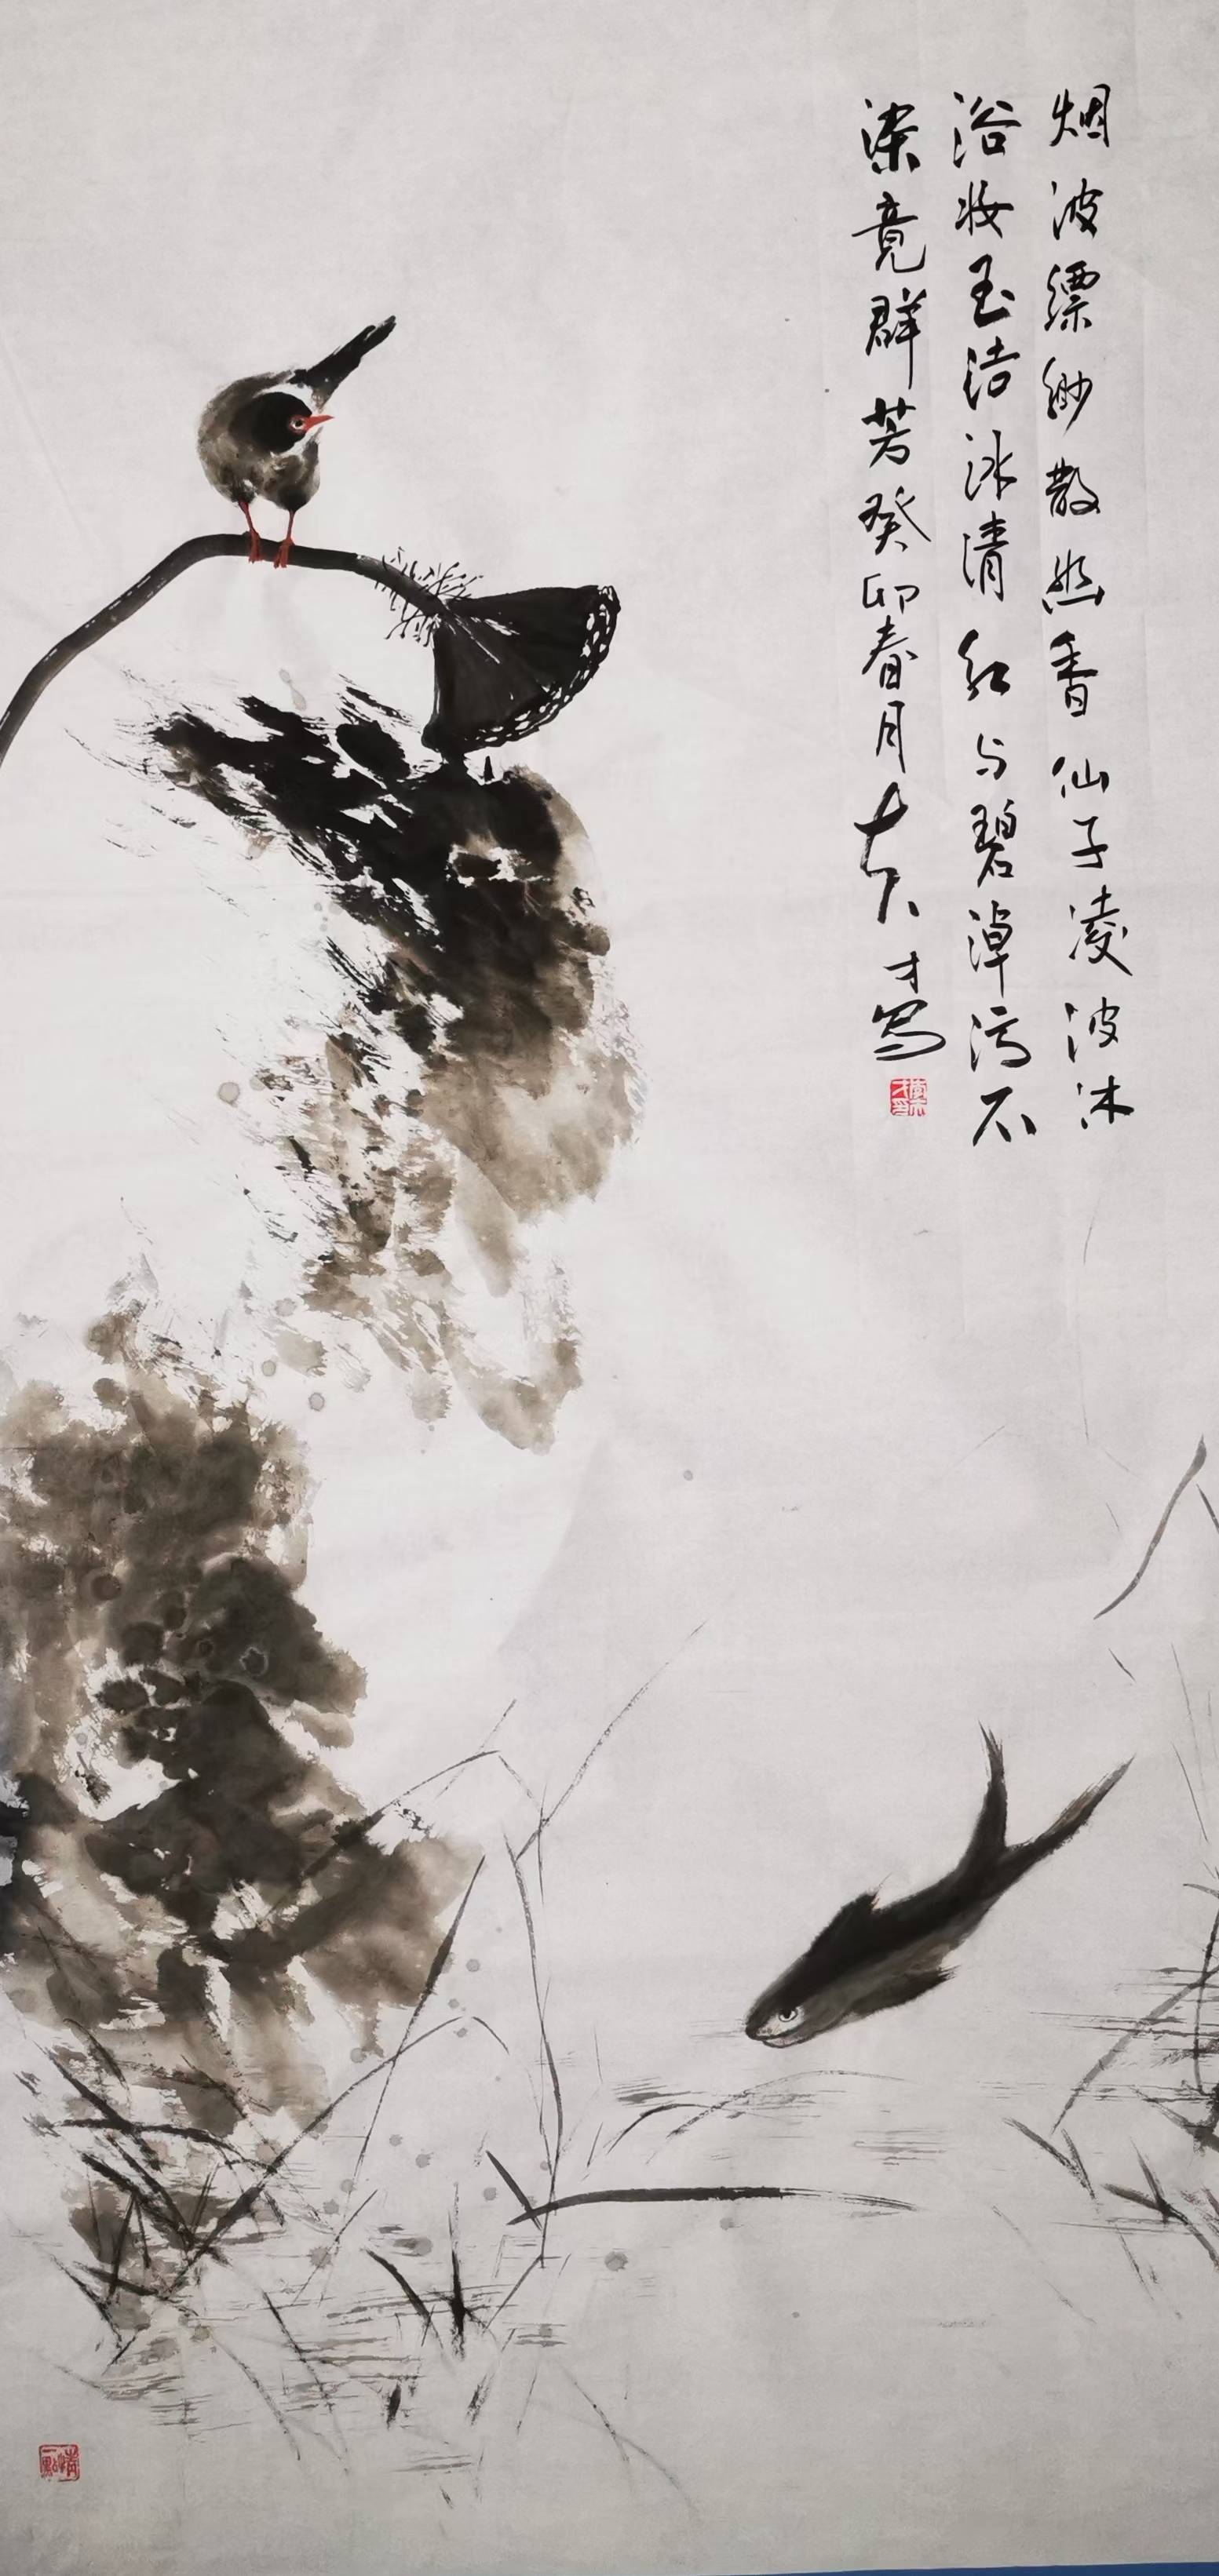 烟波缥缈散幽香仙子凌波沐
浴妆玉洁冰清红与碧淖污不
染竟群芳癸卯春月才写